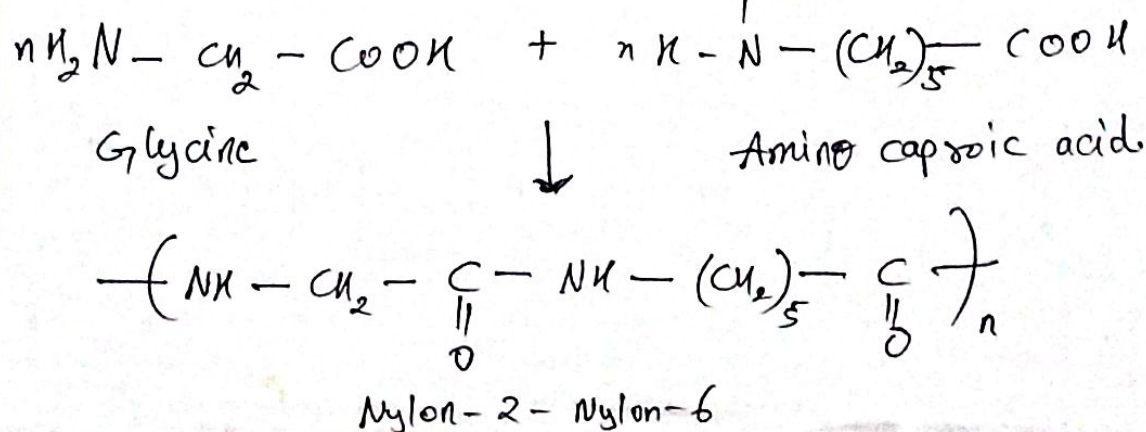 nH₂N – CH₂ – COOH + n H – N – (CH₂)₅ – COOH
Glycine ↓ Amino caproic acid.
–( NH – CH₂ – C – NH – (CH₂)₅ – C )–n
|| ||
O O
Nylon – 2 – Nylon – 6